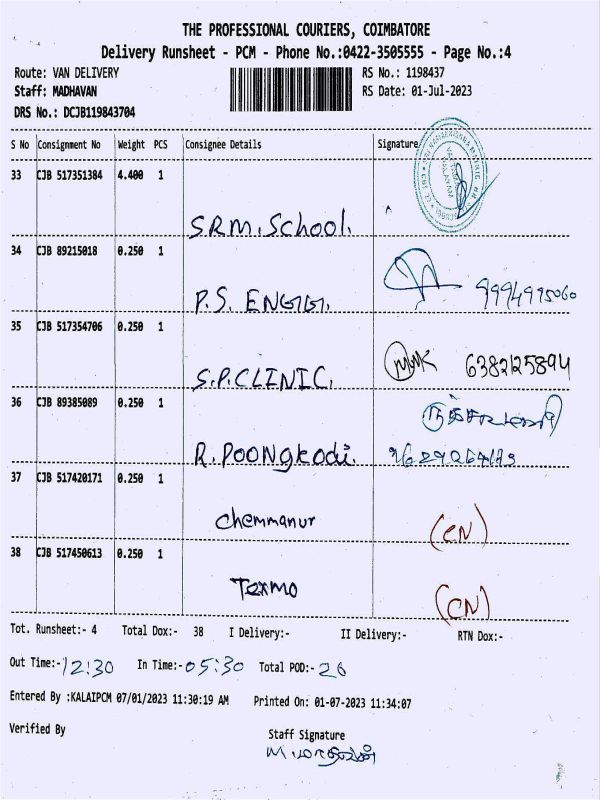 THE PROFESSIONAL COURIERS, COIMBATORE
Delivery Runsheet - PCM - Phone No.:0422-3505555 - Page No.:4
Route: VAN DELIVERY RS No.: 1198437
Staff: MADHAVAN RS Date: 01-Jul-2023
DRS No.: DCJB119843704
S No Consignment No Weight PCS Consignee Details Signature
33 CJB 517351384 4.400 1
S.R.M. School.
34 CJB 89215018 0.250 1
P.S. ENGG. 9994995060
35 CJB 517354706 0.250 1
S.P.CLINIC. 6382125894
36 CJB 89385089 0.250 1
R. POONgkodi.
37 CJB 517420171 0.250 1
Chemmanur (CN)
38 CJB 517450613 0.250 1
Texmo (CN)
Tot. Runsheet:- 4 Total Dox:- 38 I Delivery:- II Delivery:- RTN Dox:-
Out Time:- 12:30 In Time:- 05:30 Total POD:- 26
Entered By :KALAIPCM 07/01/2023 11:30:19 AM Printed On: 01-07-2023 11:34:07
Verified By Staff Signature
M. மாதவன்